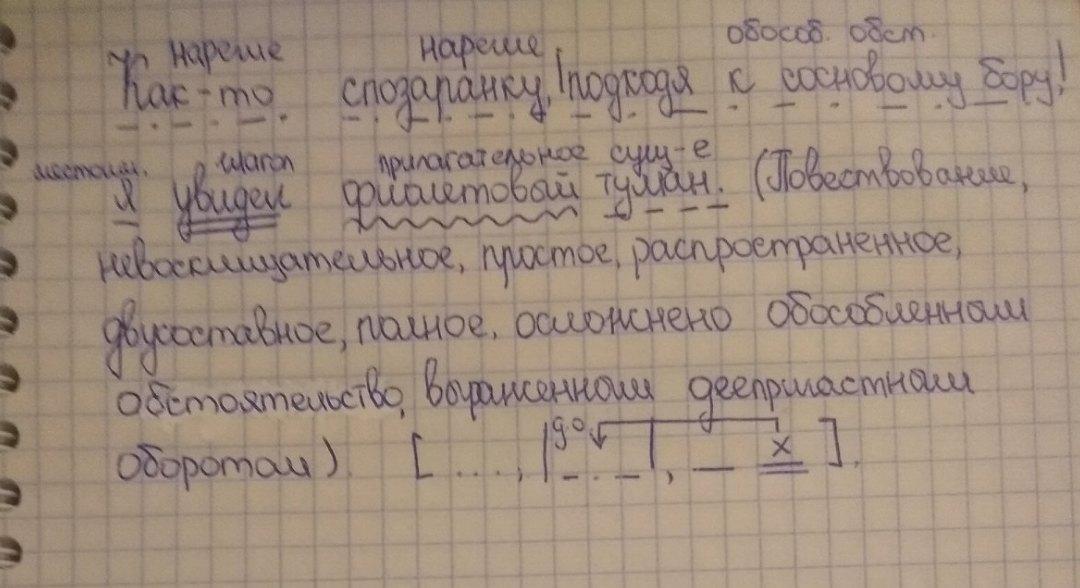 наречие наречие обособ. обст.
Как-то спозаранку, |подходя к сосновому бору|
местоим. глагол прилагательное сущ-е
я увидел фиолетовый туман. (Повествование,
невосклицательное, простое, распространенное,
двусоставное, полное, осложнено обособленным
обстоятельство, выраженным деепричастным
оборотом). [ ..., |до _._|, — х ].